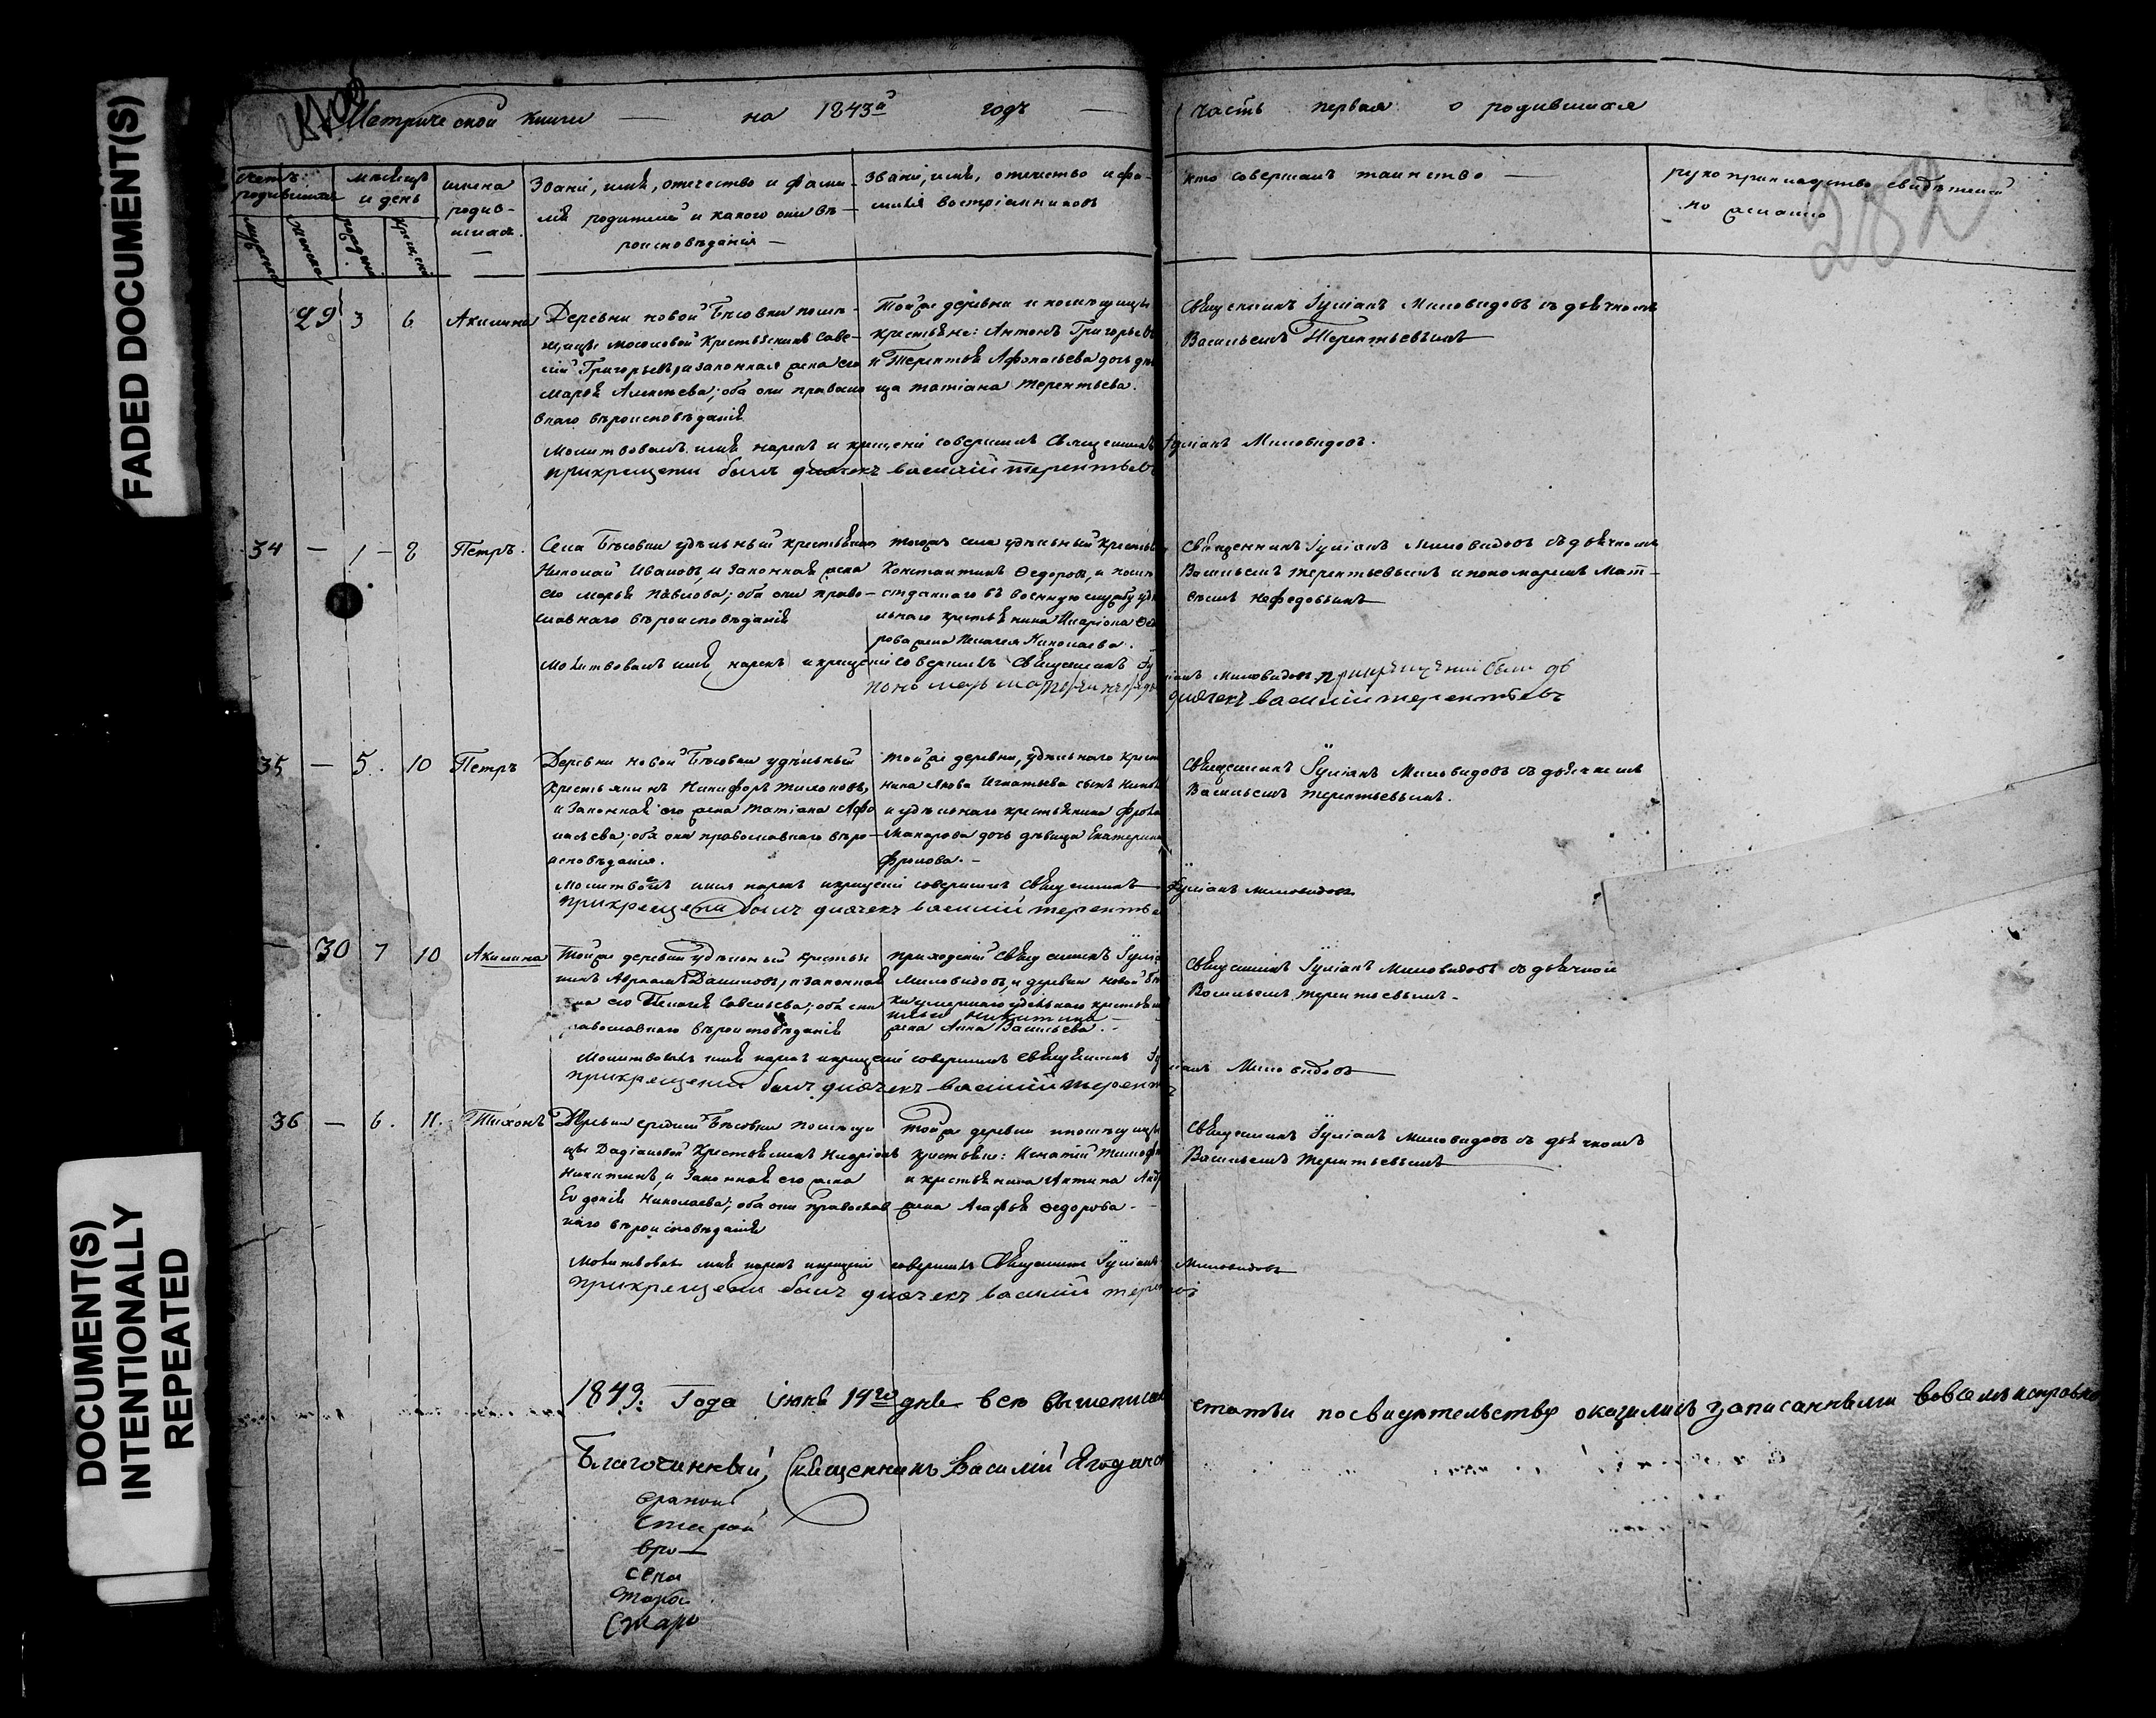 FADED DOCUMENT(S)
DOCUMENT(S) INTENTIONALLY REPEATED
Метрической книги — на 1843й годъ — часть первая о родившихся
282
Счетъ родившихся
мужеска
женска
мѣсяцъ и день
рожденія
крещенія
имена родив-
шихся
Званіе, имя, отечество и фами-
лія родителей и какого они вѣ-
роисповѣданія —
Званіе, имя, отечество и фа-
милія воспріемниковъ
кто совершалъ таинство —
рукоприкладство свидѣтелей
по желанію
29 3 6 Акилина
Деревни новой Бѣсовки помѣ-
щицы Крестьянинъ Саве-
лій Григорьевъ, и законная жена его
Марья Алексѣева; оба они правосла
внаго вѣроисповѣданія
Тойже деревни и помѣщицы
крестьяне: Антонъ Григорьевъ
и Терентья Афонасьева дочь дѣви
ца татіана терентьева.
Священникъ Іуліанъ Миловидовъ съ дьячкомъ
Васильемъ Терентьевымъ
Молитвовалъ имя нарекъ и крещеніе совершилъ Священникъ Іуліанъ Миловидовъ.
прикрещении былъ диячекъ василий терентьевъ
34 — 1 — 8 Петръ.
Села Бѣсовки удѣльный крестьянинъ
Николай Ивановъ, и Законная жена
его Марья Павлова; оба они право-
славнаго вѣроисповѣданія
тогожъ села удѣльный крестьян
Константинъ Ѳедоровъ, и
отданнаго въ военную службу удѣ
льнаго крестьянина Иларіона Ѳедо
рова жена Пелагея Николаева.
Священникъ Іуліанъ Миловидовъ съ дьячкомъ
Васильемъ терентьевымъ и пономаремъ Мат-
вѣемъ Нефедовымъ
Молитвовалъ имя нарекъ и крещеніе совершилъ Священникъ Іуліанъ Миловидовъ, прикрещении были
диячекъ василий терентьевъ
35 — 5. 10 Петръ
Деревни новой Бѣсовки удѣльный
Крестьянинъ Никифоръ тихоновъ,
и Законная его жена Татіана Афо
насьева; оба они православнаго вѣро-
исповѣданія.
тойже деревни, удѣльнаго крестья
нина Якова Игнатьева сынъ
и удѣльнаго крестьянина Фрола
Макарова дочь дѣвица Екатерина
Фролова. —
Священникъ Іуліанъ Миловидовъ съ дьячкомъ
Васильемъ терентьевымъ.
Молитвовалъ имя нарекъ и крещеніе совершилъ Священникъ Іуліанъ миловидовъ
прикрещении былъ диячекъ василий терентьев
— 30 7 10 Акилина
Тойже деревни удѣльный крестья
нинъ Авраамъ Даниловъ, и законная
жена его Пелагія Савельева; оба они
равославнаго вѣроисповѣданія
приходскій Священникъ Іуліан
Миловидовъ, и деревни новой Бѣ
ки умершаго удѣльнаго крестьян
Ильи Никитина —
жена Анна Васильева. —
Священникъ Іуліанъ Миловидовъ съ дьячкомъ
Васильемъ терентьевымъ.
Молитвовалъ имя нарекъ и крещеніе совершилъ Священникъ Іуліанъ Миловидовъ
прикрещении былъ диячекъ василий терент
36 — 6. 11. Тихонъ
Деревни средней Бѣсовки помѣщи
цы Дадіановой Крестьянинъ Андріанъ
Никитинъ, и Законная его жена
Евдокія Николаева; оба они Православ
наго вѣроисповѣданія
Тойже деревни и помѣщицы
крестьяне: Игнатій Тимофе
и крестьянина Антипа Анд
жена Агафья Ѳедорова.
Священникъ Іуліанъ Миловидовъ съ дьячкомъ
Васильемъ Терентьевымъ
Молитвовалъ имя нарекъ и крещеніе совершилъ Священникъ Іуліанъ Миловидовъ
прикрещении былъ диячекъ василий тер
1843: Года іюня 19го дня всѣ вышеписан статьи по свидѣтельству оказались записанными вовсемъ исправно
Благочинный, Священникъ Василій Ягодин
Старой
вро—
села
Стар